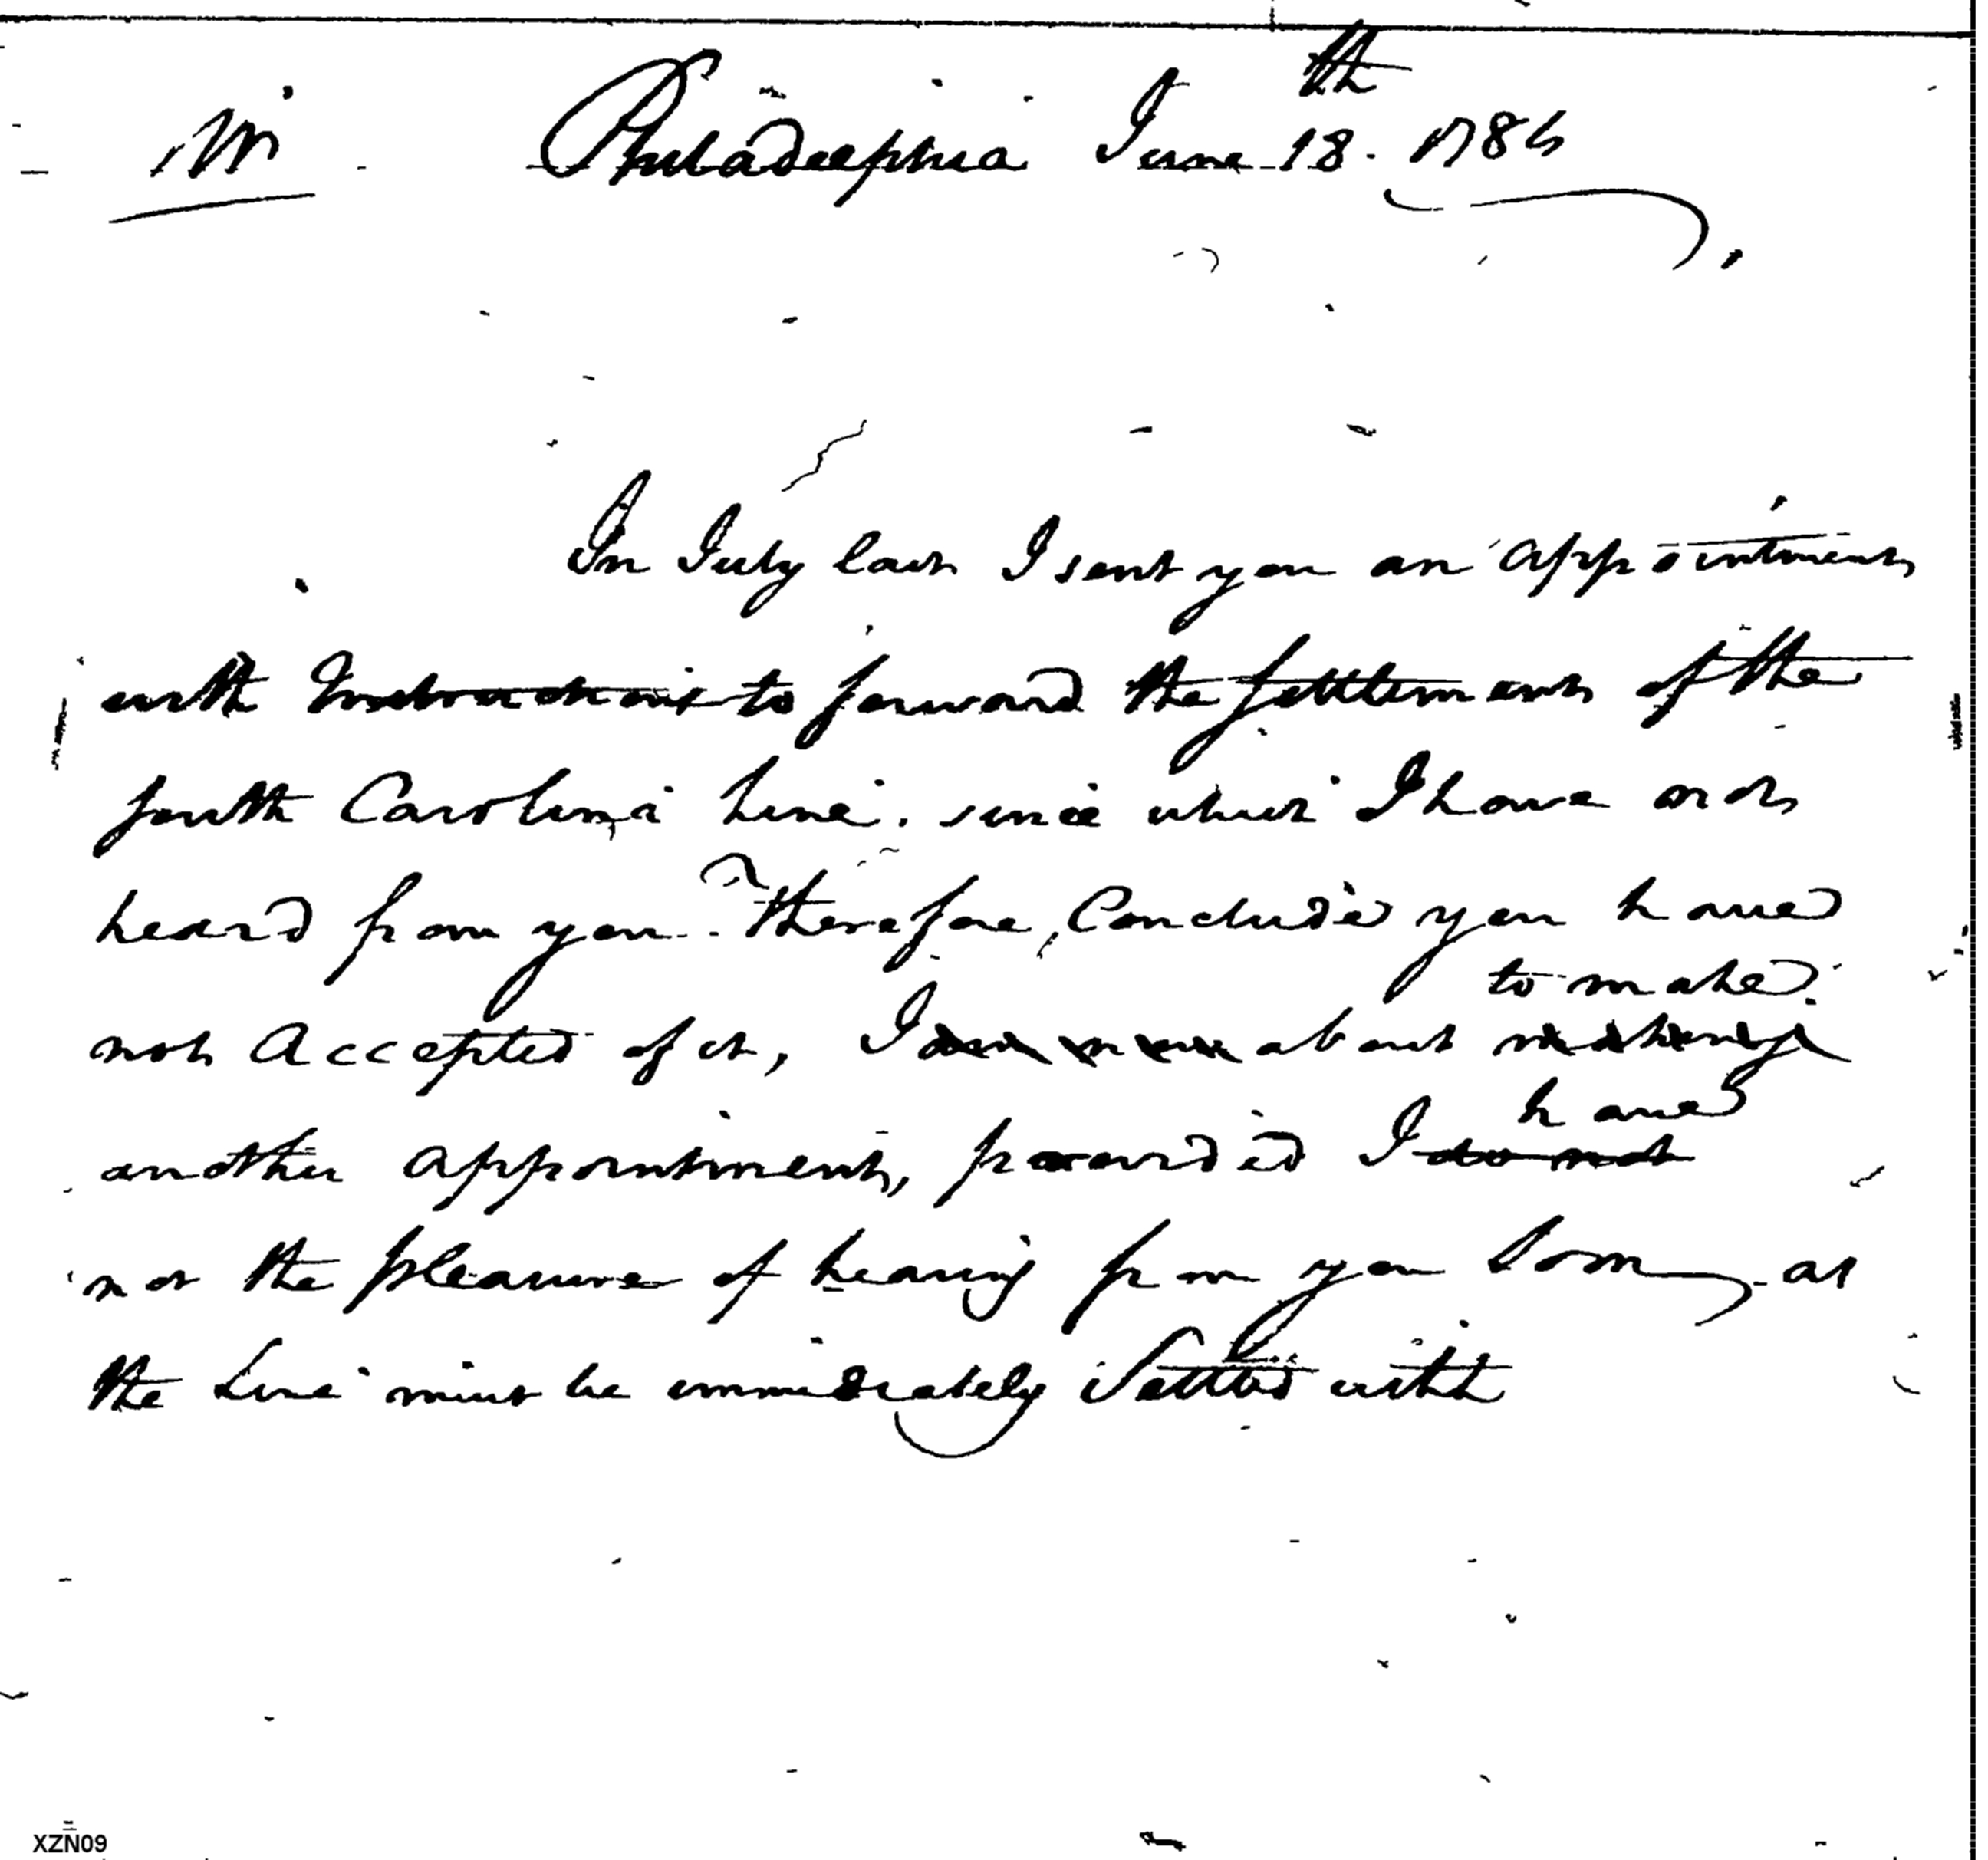 Sir Philadelphia June 18th 1784
In July last I sent you an appointment
with Instructions to forward the settlement of the
south Carolina Line. since which I have not
heard from you. Therefore, Conclude you have
to make
not Accepted of it, I about making
have
another appointment, provided I do not
not the pleasure of hearing from you soon as
the Line must be immediately Settled with
XZN09